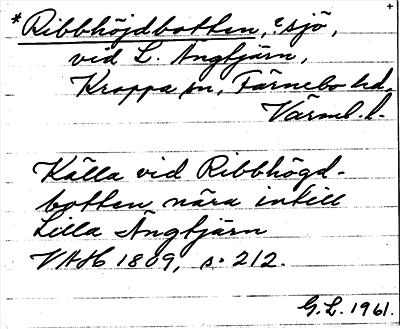 *Ribbhöjdbotten, ? sjö,
vid L. Ängtjärn,
Kroppa sn, Färnebo hd.
Värml. l.
Källa vid Ribbhögd-
botten nära intill
Lilla Ängtjärn
VAH 1809, s. 212.
G.L. 1961.